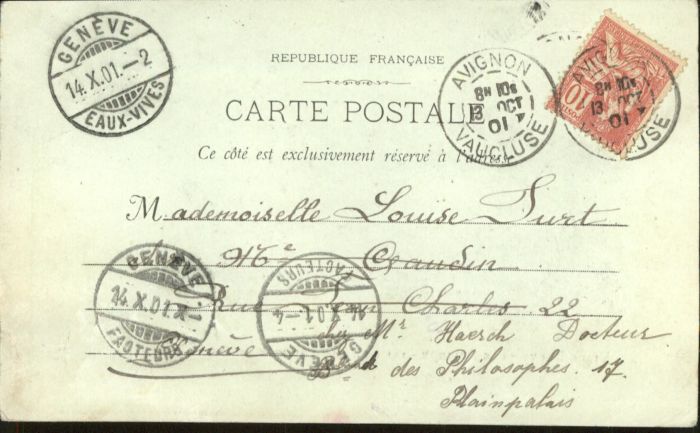 GENÈVE
14.X.01.-2
EAUX-VIVES
REPUBLIQUE FRANÇAISE
CARTE POSTALE
Ce côté est exclusivement réservé à l'adresse
AVIGNON
8H 10s
13 OCT
01
VAUCLUSE
AVIGNON
8H 10s
13 OCT
01
VAUCLUSE
10
Mademoiselle Louise Turt
Mce Gaudin
Rue Jean Charles 22
Genève
chez Mr Haesch Docteur
Bd des Philosophes. 17.
Plainpalais
GENÈVE
14.X.01.X-1
FACTEURS
GENÈVE
14.X.01.-4
FACTEURS